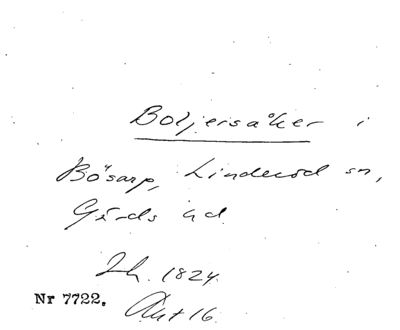 Boljersåker i
Bösarp, Linderöd sn,
Gärds hd
Lh. 1824.
Nr 7722.
Akt 16.